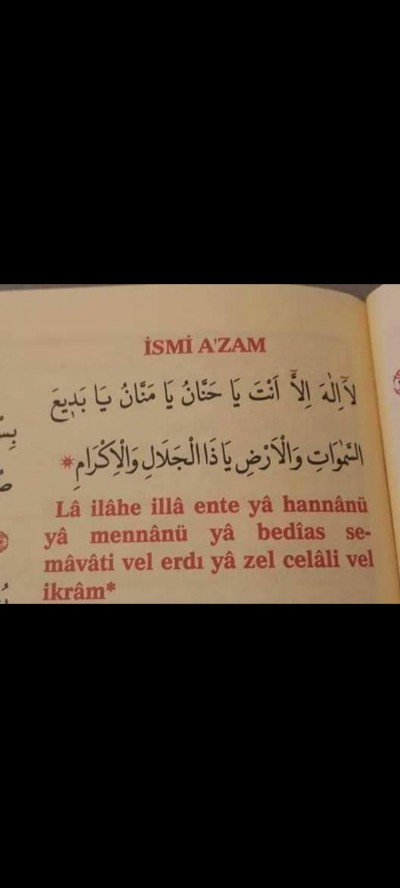 İSMİ A'ZAM
لَآ اِلٰهَ اِلَّآ اَنْتَ يَا حَنَّانُ يَا مَنَّانُ يَا بَدٖيعَ
السَّمٰوَاتِ وَالْاَرْضِ يَا ذَا الْجَلَالِ وَالْاِكْرَامِ *
Lâ ilâhe illâ ente yâ hannânü
yâ mennânü yâ bedîas se-
mâvâti vel erdı yâ zel celâli vel
ikrâm*